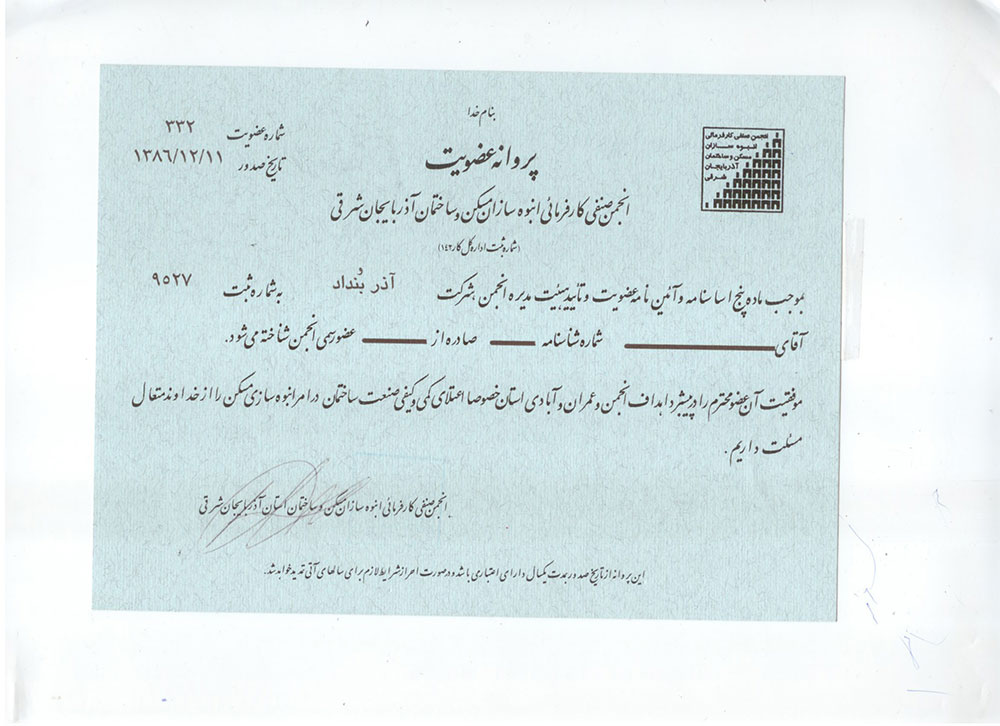 بنام خدا
شماره عضویت ۳۳۲
تاریخ صدور ۱۳۸۶/۱۲/۱۱
انجمن صنفی کارفرمائی
انبوه سازان
مسکن و ساختمان
آذربایجان
شرقی
پروانه عضویت
انجمن صنفی کارفرمائی انبوه سازان مسکن و ساختمان آذربایجان شرقی
(شماره ثبت اداره کل کار ۱۴۲)
بموجب ماده پنج اساسنامه و آئین نامه عضویت و تایید هیئت مدیره انجمن، شرکت آذر بُنداد به شماره ثبت ۹۵۲۷
آقای شماره شناسنامه صادره از عضو رسمی انجمن شناخته می شود.
موفقیت آن عضو محترم را در پیشبرد اهداف انجمن و عمران و آبادی استان خصوصا اعتلای کمی و کیفی صنعت ساختمان در امر انبوه سازی مسکن را از خداوند متعال
مسئلت داریم.
انجمن صنفی کارفرمائی انبوه سازان مسکن و ساختمان استان آذربایجان شرقی
این پروانه از تاریخ صدور بمدت یکسال دارای اعتبار می باشد و در صورت احراز شرایط لازم برای سالهای آتی تمدید خواهد شد.